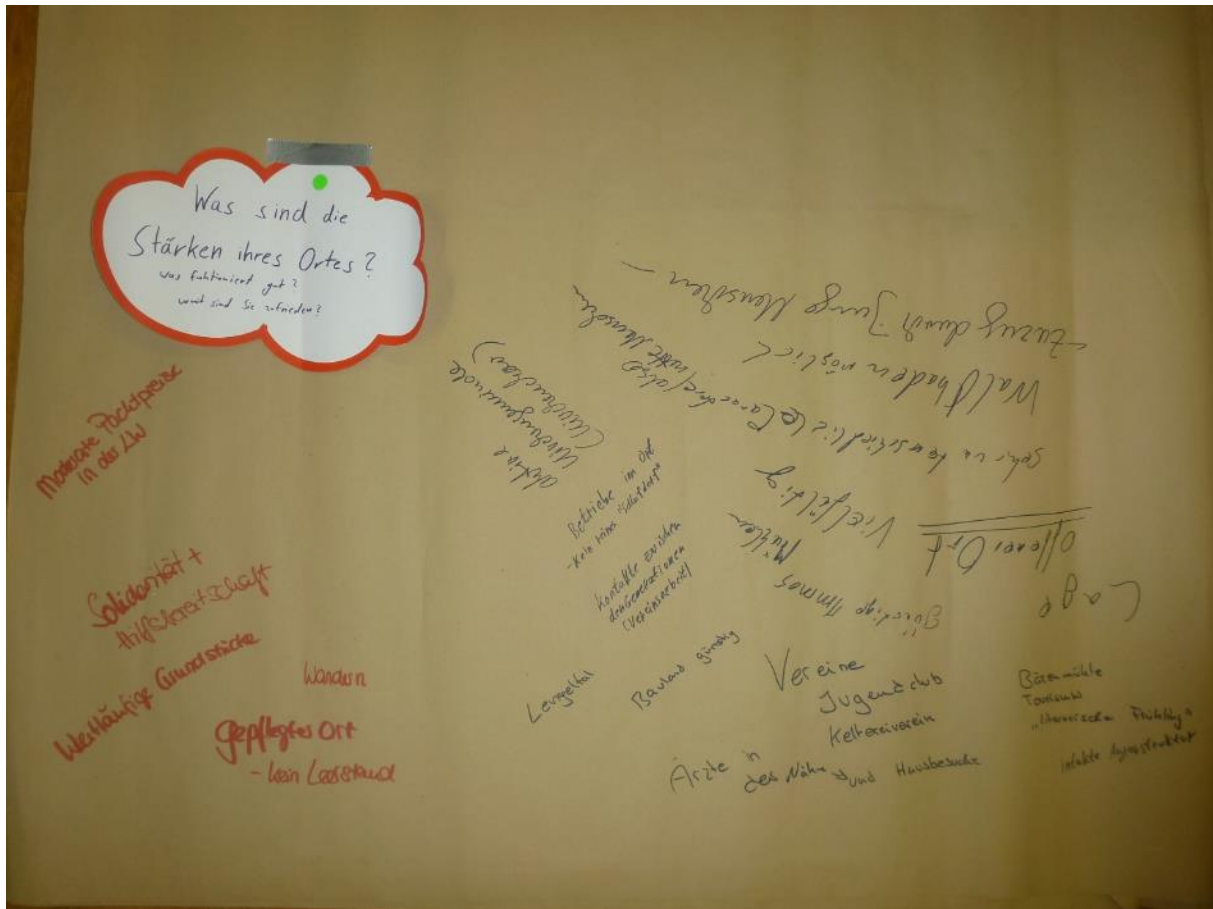 Was sind die
Stärken ihres Ortes?
was funktioniert gut?
womit sind Sie zufrieden?
Moderate Pachtpreise
in der LW
Solidarität +
Hilfsbereitschaft
Weitläufige Grundstücke
Wandern
gepflegter Ort
- kein Leerstand
aktive
Kirchengemeinde
Betriebe im Ort
- kein reines
Kontakte zwischen
den Generationen
(Vereinsarbeit)
Lengeltal
Bauland günstig
- Zuzug durch Junge Menschen -
Waldbaden möglich
sehr unterschiedliche
nette Menschen
Vielfältig
Offener Ort
Mühlen
Günstige Immos
Lage
Vereine
Jugendclub
Keltereiverein
Ärzte in
der Nähe und Hausbesuche
Bärenmühle
Tourismus
"literarischer Frühling"
intakte Agrarstruktur